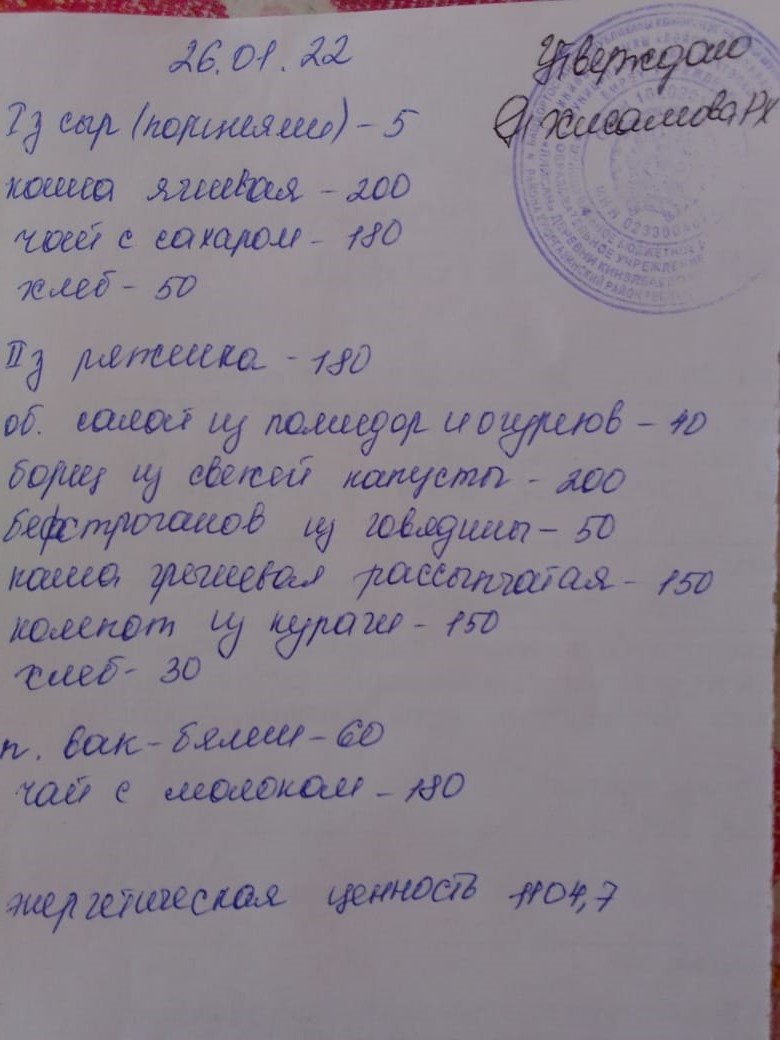 26.01.22
Утверждаю
Хисамова РХ
I з сыр (порциями) - 5
каша ячневая - 200
чай с сахаром - 180
хлеб - 50
II з ряженка - 180
об. салат из помидор и огурцов - 40
борщ из свежей капусты - 200
бефстроганов из говядины - 50
каша гречневая рассыпчатая - 150
компот из кураги - 150
хлеб - 30
п. вак-бялиш - 60
чай с молоком - 180
энергетическая ценность 1104,7